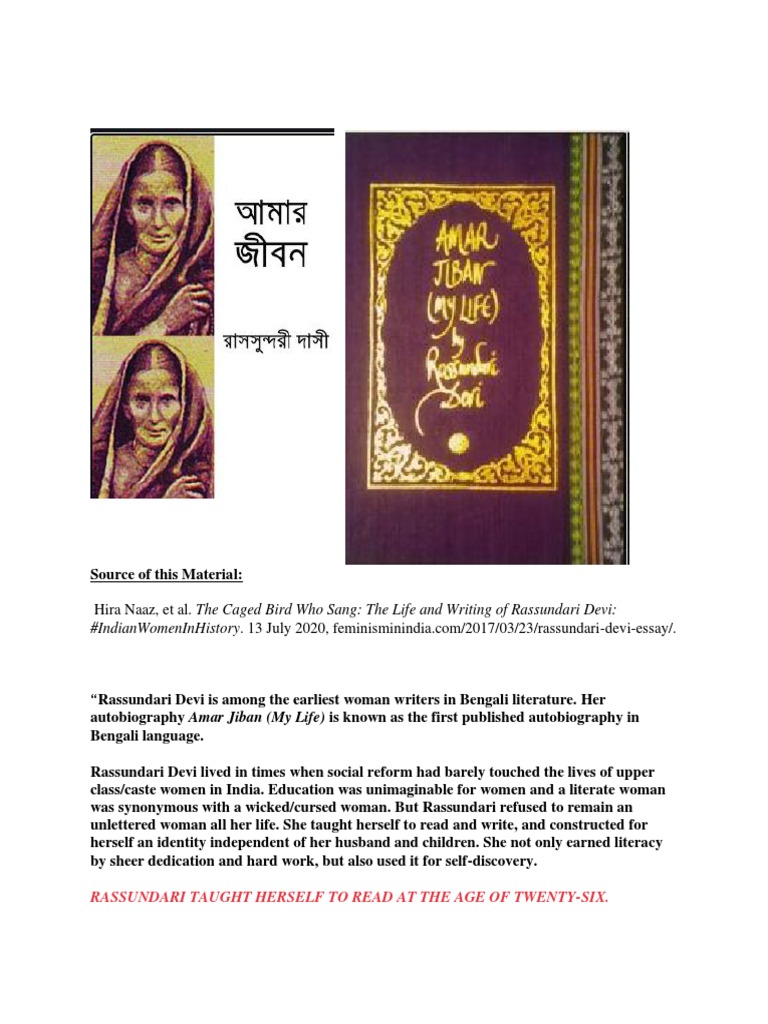 আমার
জীবন
রাসসুন্দরী দাসী
AMAR
JIBAN
(MY LIFE)
by
Rassundari
Devi
Source of this Material:
Hira Naaz, et al. The Caged Bird Who Sang: The Life and Writing of Rassundari Devi:
#IndianWomenInHistory. 13 July 2020, feminisminindia.com/2017/03/23/rassundari-devi-essay/.
“Rassundari Devi is among the earliest woman writers in Bengali literature. Her
autobiography Amar Jiban (My Life) is known as the first published autobiography in
Bengali language.
Rassundari Devi lived in times when social reform had barely touched the lives of upper
class/caste women in India. Education was unimaginable for women and a literate woman
was synonymous with a wicked/cursed woman. But Rassundari refused to remain an
unlettered woman all her life. She taught herself to read and write, and constructed for
herself an identity independent of her husband and children. She not only earned literacy
by sheer dedication and hard work, but also used it for self-discovery.
RASSUNDARI TAUGHT HERSELF TO READ AT THE AGE OF TWENTY-SIX.